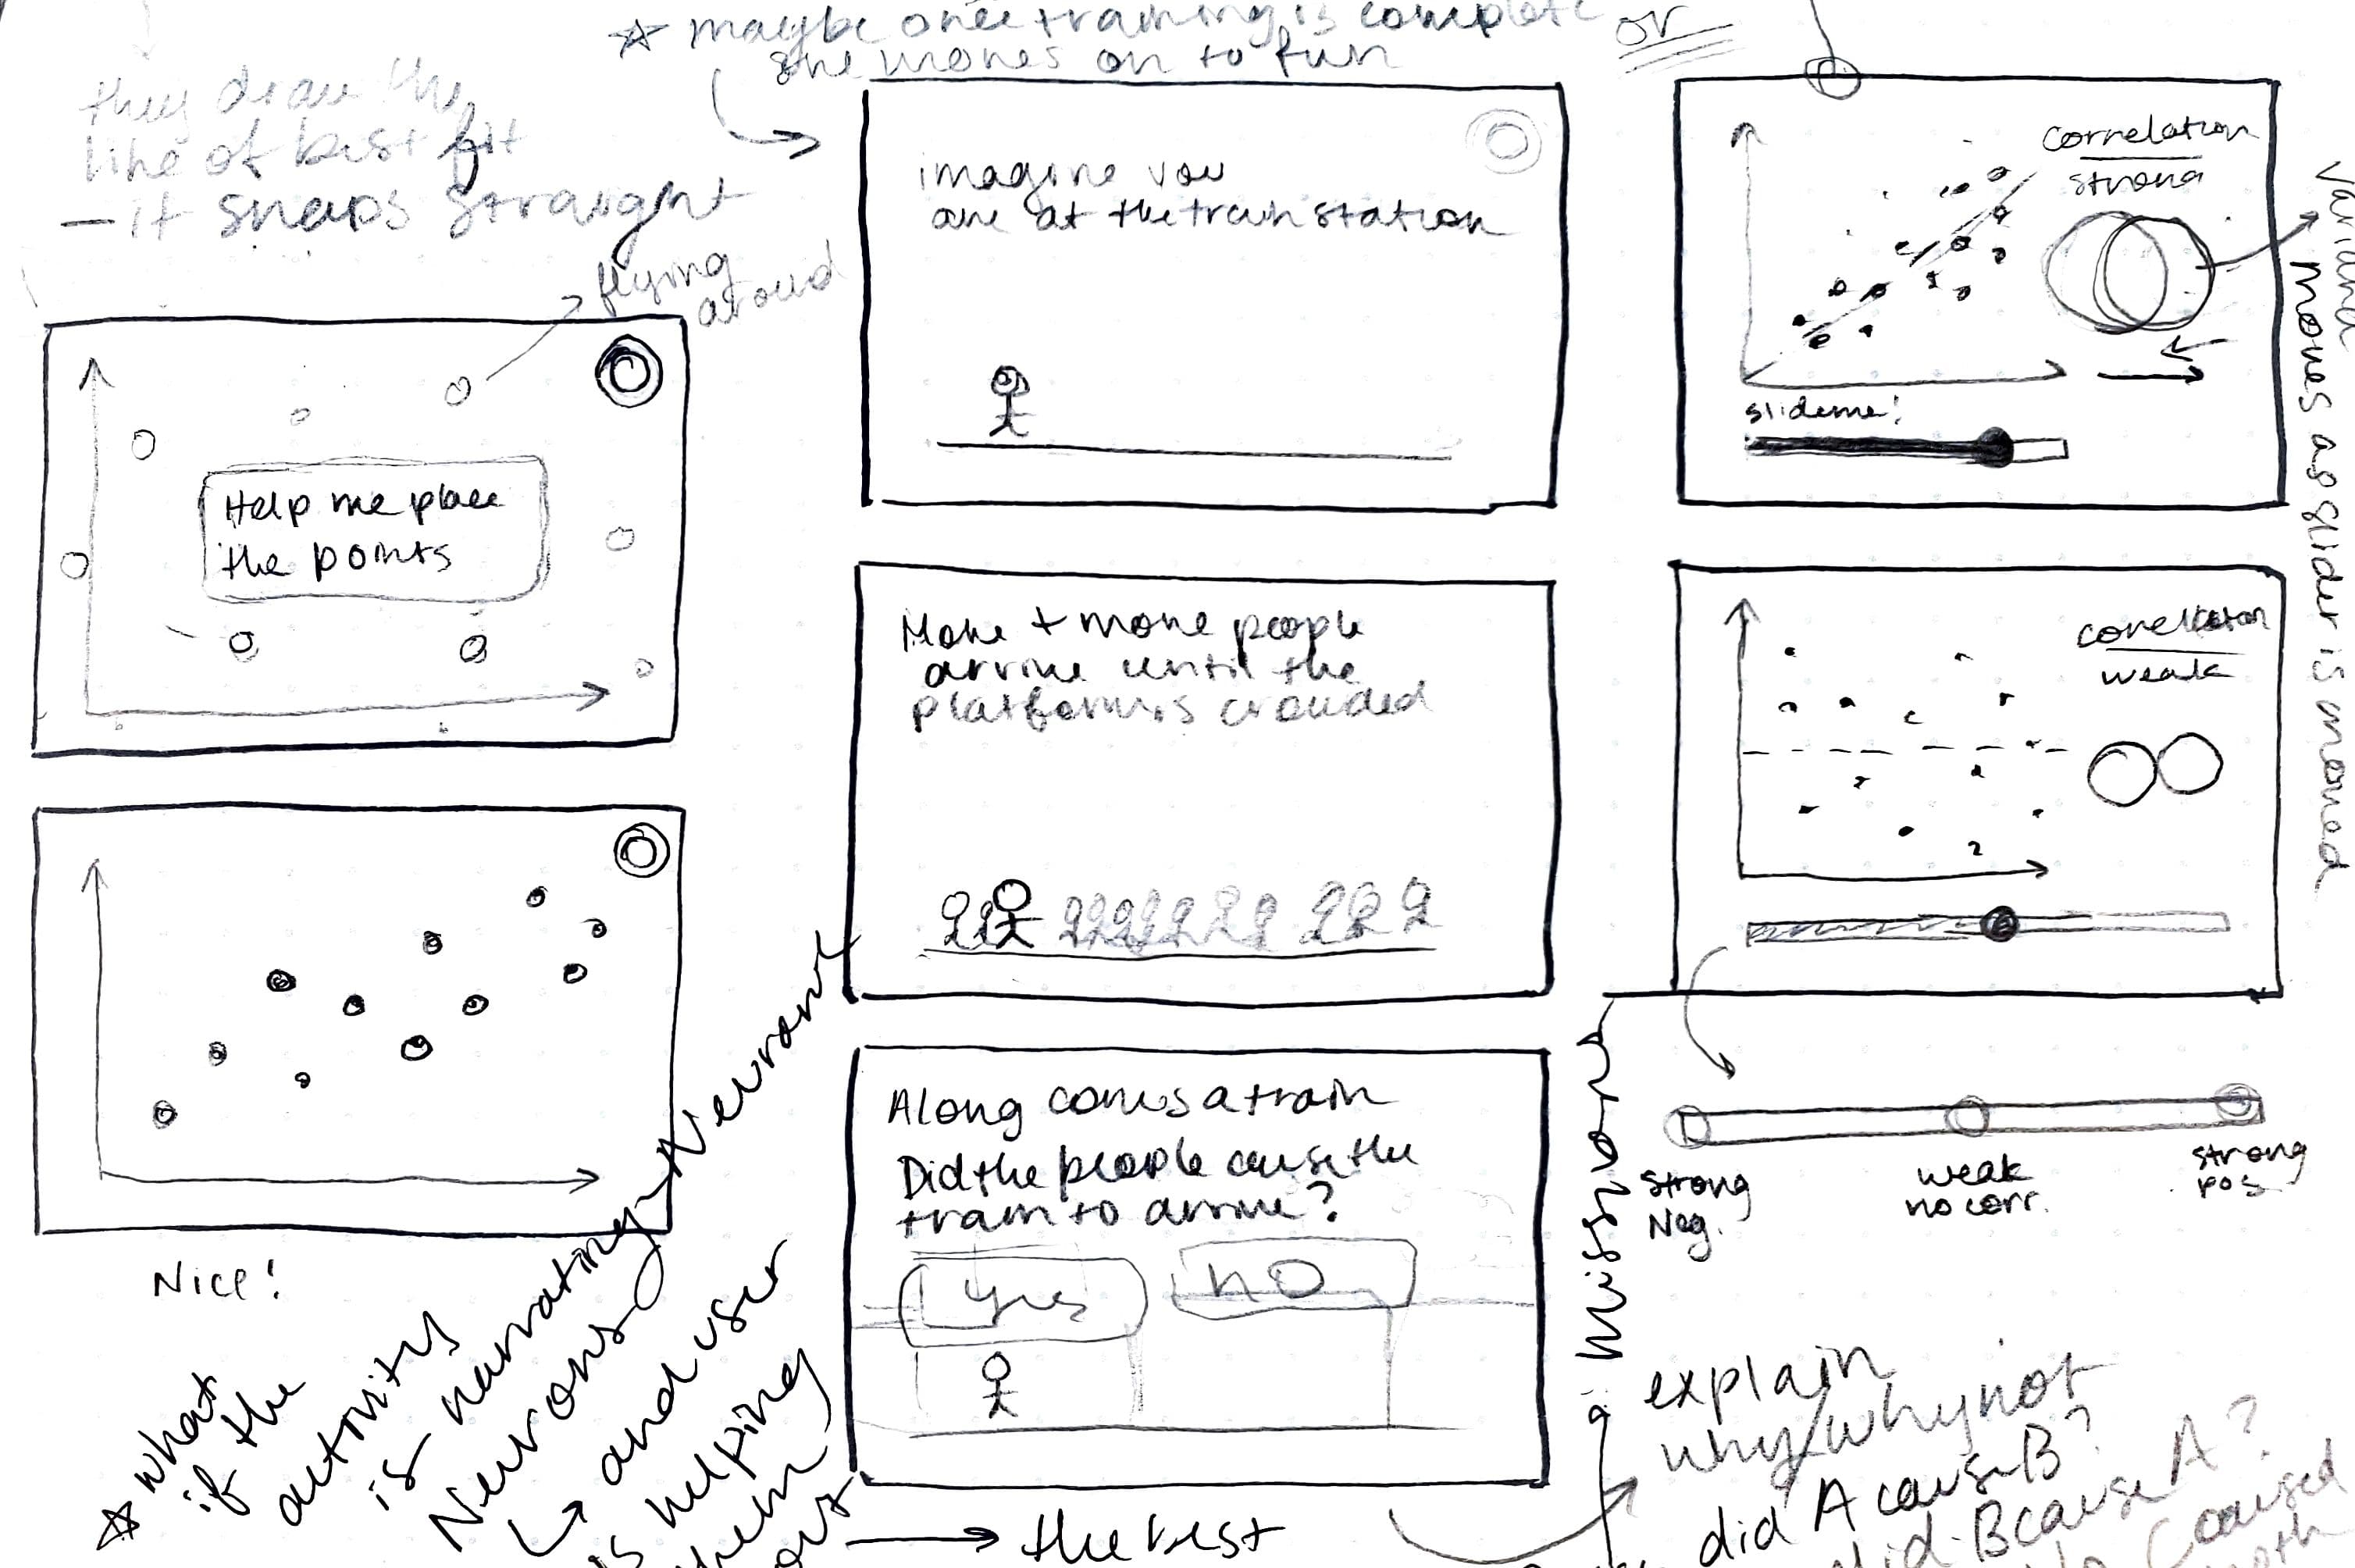 ☆ maybe once training is complete
she moves on to fun
or
they draw the
line of best fit
— it snaps straight
flying
around
Help me place
the points
Nice!
☆ what
if the
activity
is narrating
Neurons
and user
is helping
them
→ the rest
imagine you
are at the train station
More + more people
arrive until the
platform is crowded
Along comes a train
Did the people cause the
train to arrive?
yes
no
correlation
strong
slide me!
moves as slider is moved
correlation
weak
strong
Neg.
weak
no corr.
strong
pos
explain
why/why not
did A cause B?
did B cause A?
C caused